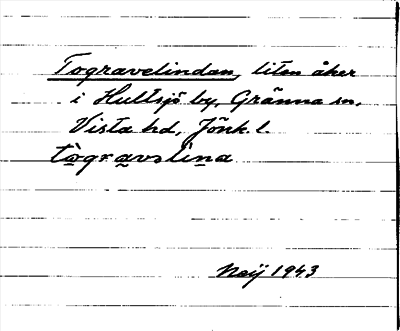 Togravelindan, liten åker
i Hultsjö by, Gränna sn,
Vista hd, Jönk. l.
tògravslina
Neij 1943